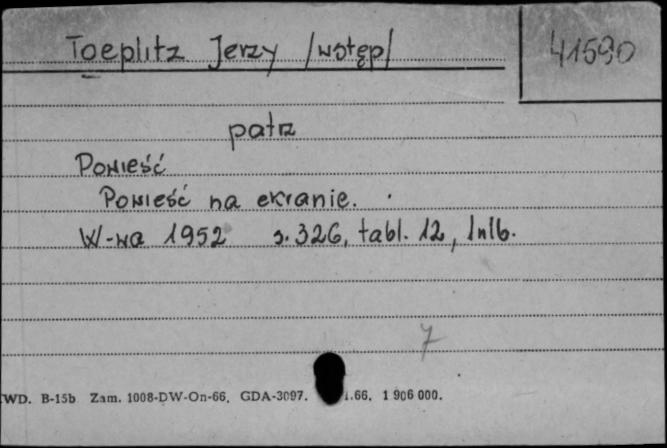 Toeplitz Jerzy /wstęp/
41590
patrz
Powieść
Powieść na ekranie.
W-wa 1952 s. 326, tabl. 12, lnlb.
7
WD. B-15b Zam. 1008-DW-On-66. GDA-3097. .66. 1 906 000.